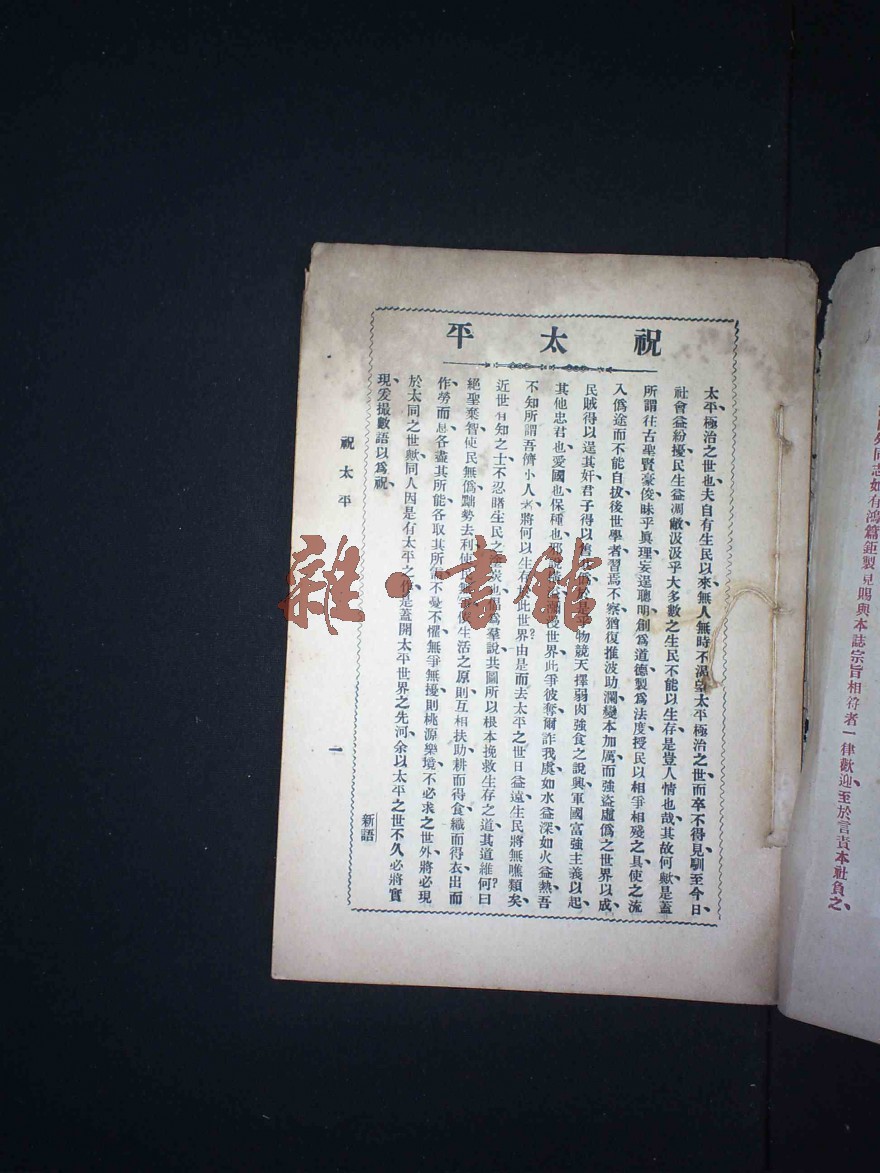 祝太平
太平、極治之世也、夫自有生民以來、無人無時不渴望太平極治之世、而卒不得見、馴至今日、
社會益紛擾、民生益凋敝、汲汲乎大多數之生民不能以生存、是豈人情也哉、其故何歟、是蓋
所謂往古聖賢豪俊、昧乎眞理、妄逞聰明、創爲道德、製爲法度、授民以相爭相殘之具、使之流
入僞途而不能自拔、後世學者、習焉不察、猶復推波助瀾、變本加厲、而強盜虛僞之世界以成、
民賊得以逞其奸、君子得以 於是乎物競天擇弱肉強食之說興、軍國富強主義以起、
其他忠君也、愛國也、保種也、 世界、此爭彼奪、爾詐我虞、如水益深、如火益熱、吾
不知所謂吾儕小人、將何以生存 此世界?由是而去太平之世日益遠、生民將無噍類矣、
近世有知之士、不忍睹生民之 炭也、倡爲羣說、共圖所以根本挽救生存之道、其道維何?曰
絕聖棄智、使民無僞、黜勢去利、使民無 依生活之原則、互相扶助、耕而得食、織而得衣、出而
作、勞而息、各盡其所能、各取其所需、不憂不懼、無爭無擾、則桃源樂境、不必求之世外、將必現
於大同之世歟、同人因是有太平之作、是蓋開太平世界之先河、余以太平之世不久必將實
現、爰撮數語以爲祝、
祝太平
一
新語
同志如有鴻篇鉅製見賜與本誌宗旨相符者一律歡迎、至於言責、本社負之、
雜·書館